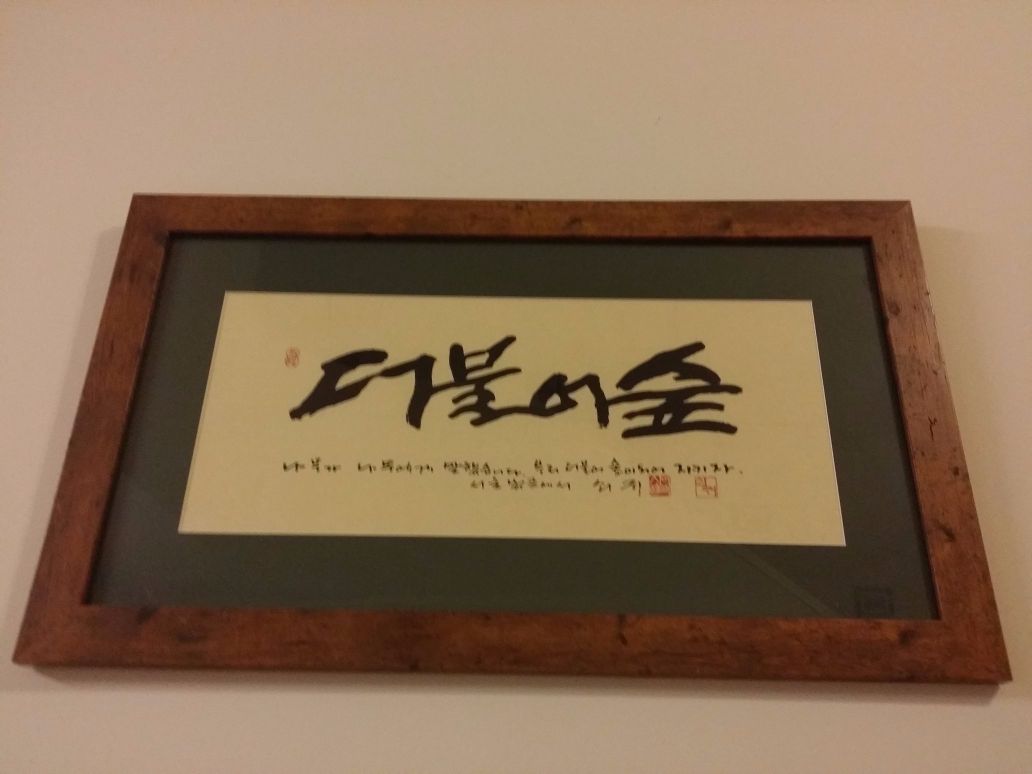 더불어숲
나무가 나무에게 말했습니다. 우리 더불어 숲이되어 지키자.